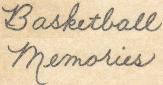 Basketball
Memories